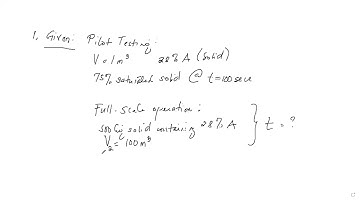 1. Given: Pilot Testing:
V = 1 m³ 28% A (solid)
75% saturated solid @ t=100 sec
Full-scale operation:
500 kg solid containing 28% A
V₂ = 100 m³
t = ?